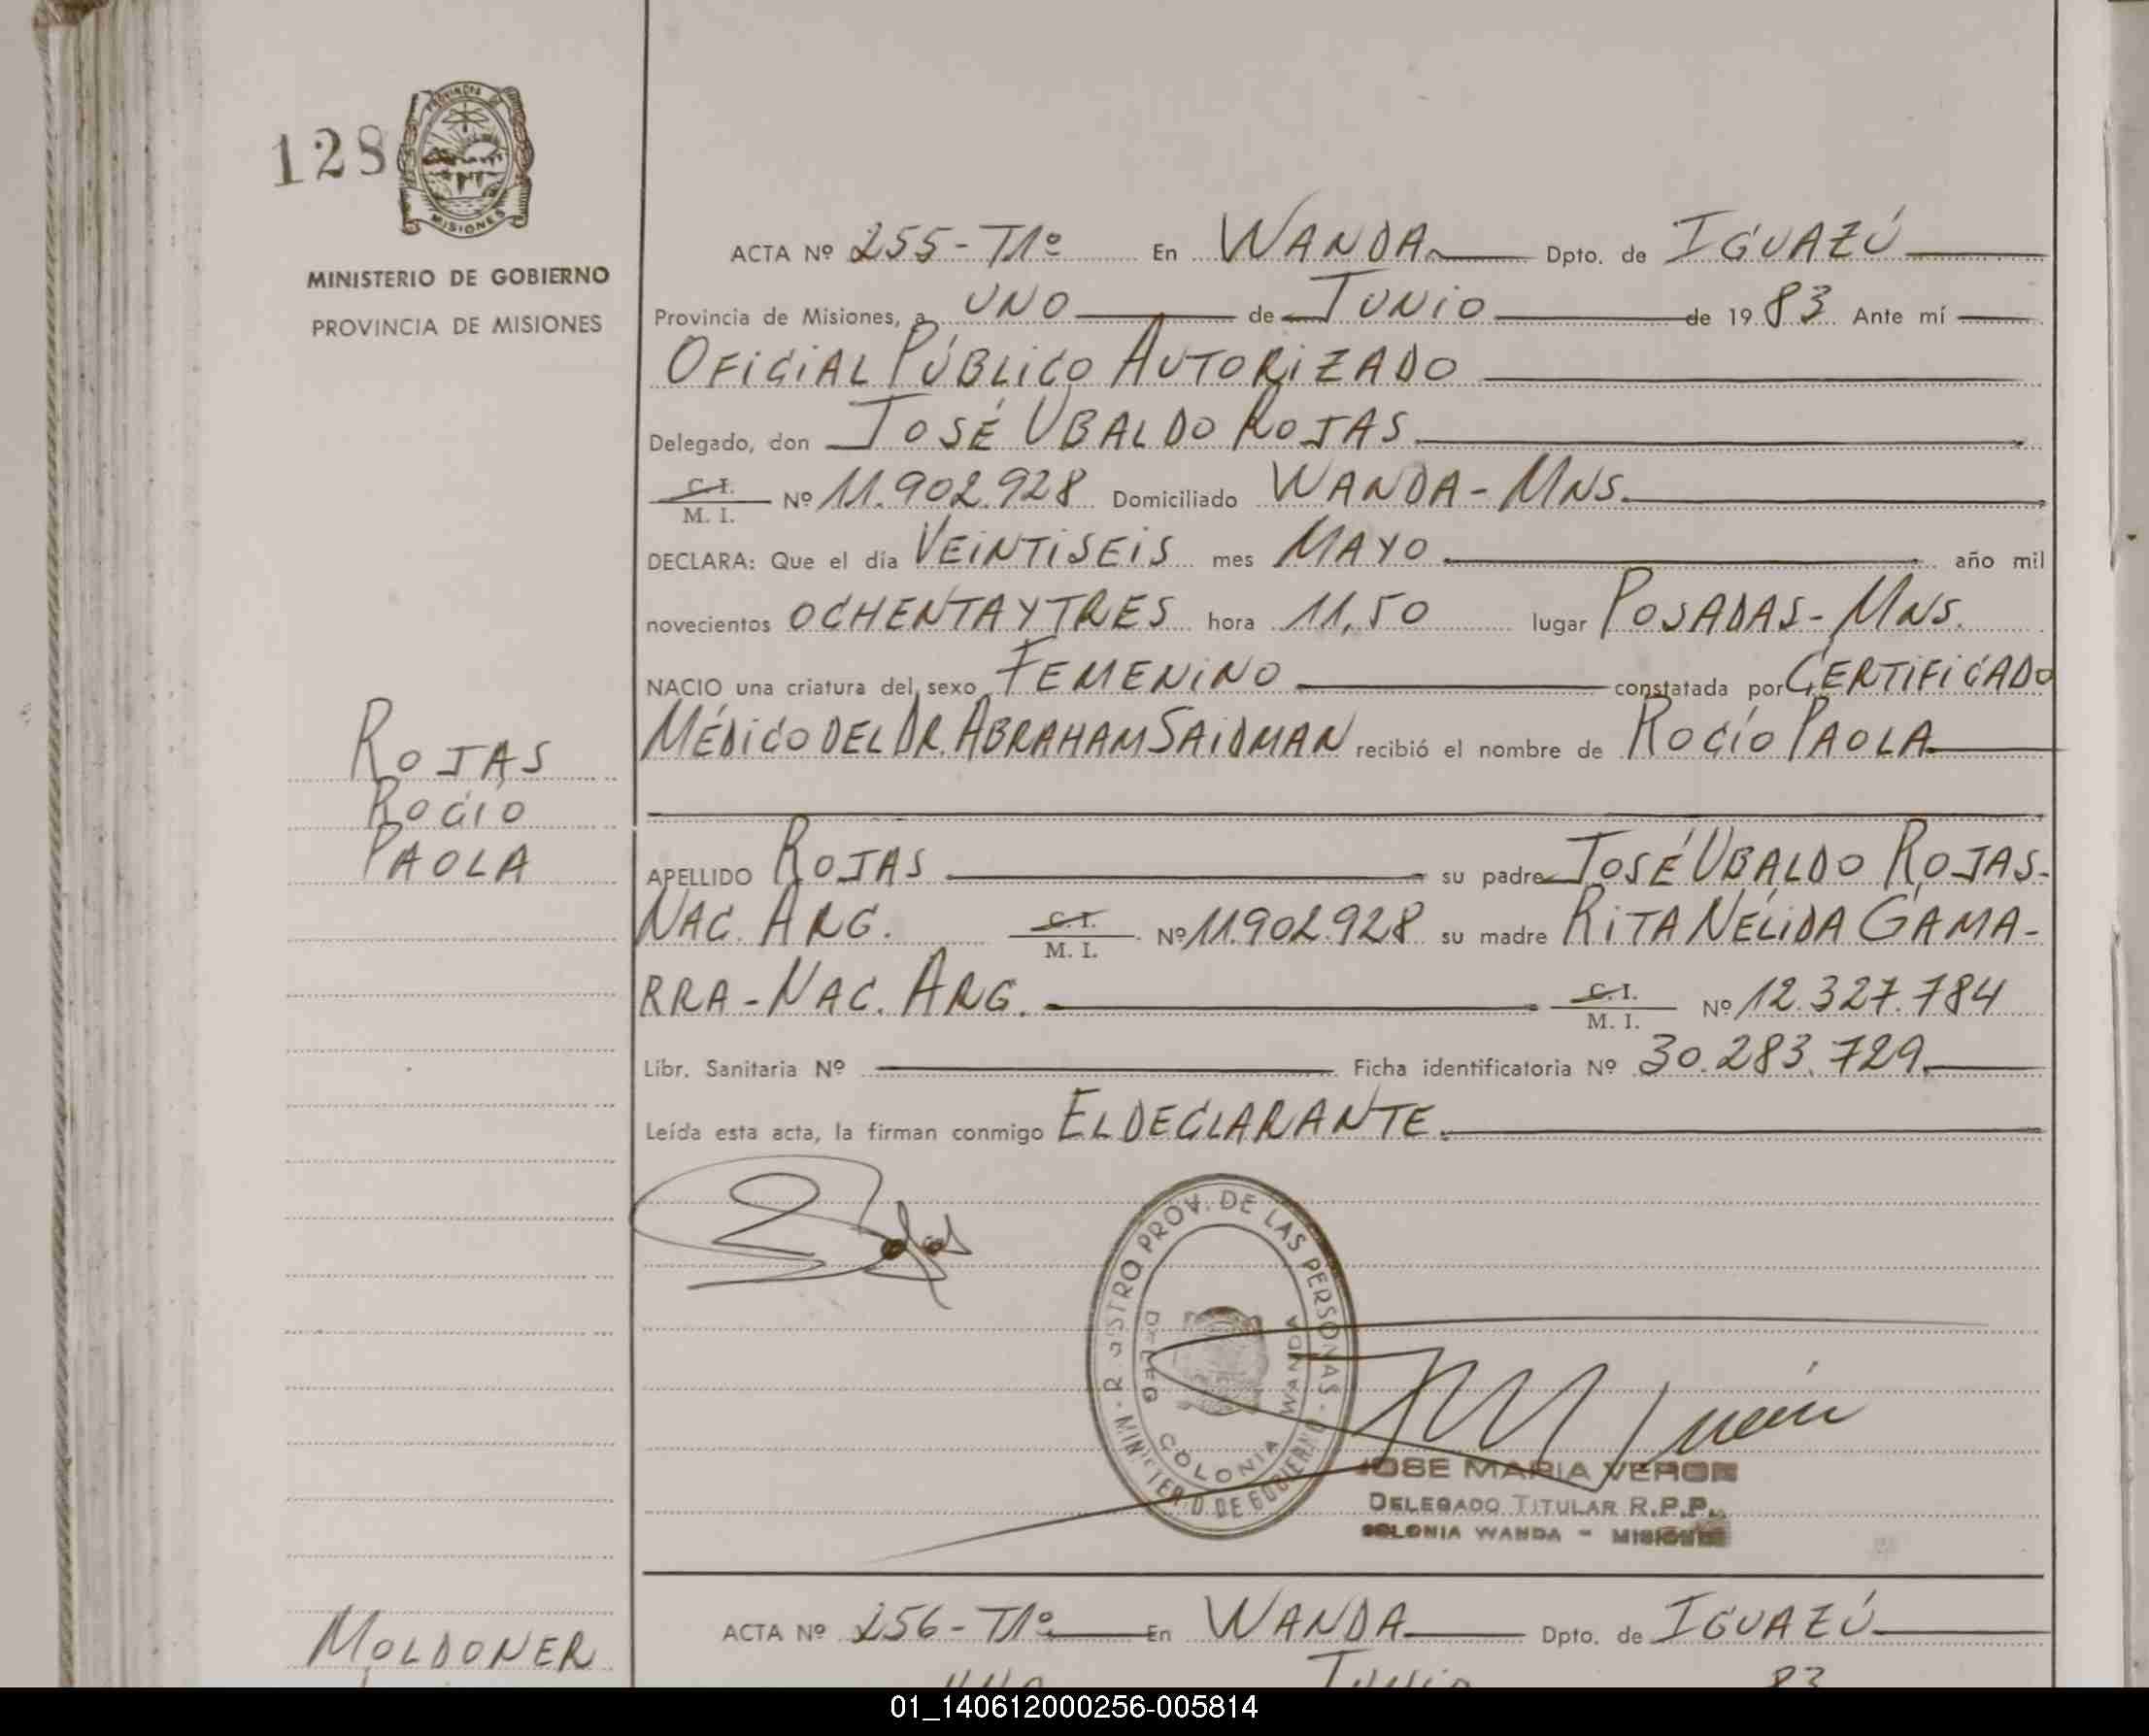 128
PROVINCIA DE
MISIONES
MINISTERIO DE GOBIERNO
PROVINCIA DE MISIONES
ROJAS
ROCIO
PAOLA
ACTA Nº 255-T1º En WANDA Dpto. de IGUAZÚ
Provincia de Misiones, a UNO de JUNIO de 1983 Ante mí
OFICIAL PÚBLICO AUTORIZADO
Delegado, don JOSÉ UBALDO ROJAS
C.I.
M. I. Nº 11.902.928 Domiciliado WANDA-MNS.
DECLARA: Que el día VEINTISEIS mes MAYO año mil
novecientos OCHENTA Y TRES hora 11,50 lugar POSADAS-MNS.
NACIO una criatura del sexo FEMENINO constatada por CERTIFICADO
MÉDICO DEL DR. ABRAHAM SAIDMAN recibió el nombre de ROCÍO PAOLA
APELLIDO ROJAS su padre JOSÉ UBALDO ROJAS-
NAC. ARG. C.I.
M. I. Nº 11.902.928 su madre RITA NÉLIDA GAMA-
RRA-NAC. ARG. C.I.
M. I. Nº 12.327.784
Libr. Sanitaria Nº Ficha identificatoria Nº 30.283.729
Leída esta acta, la firman conmigo EL DECLARANTE.
Rojas
REGISTRO PROV. DE LAS PERSONAS - MINISTERIO DE GOBIERNO
DELEG COLONIA WANDA
JOSE MARIA VERON
DELEGADO TITULAR R.P.P.
COLONIA WANDA - MISIONES
MOLDONER
ACTA Nº 256-T1º En WANDA Dpto. de IGUAZÚ
UNO JUNIO 83
01_140612000256-005814